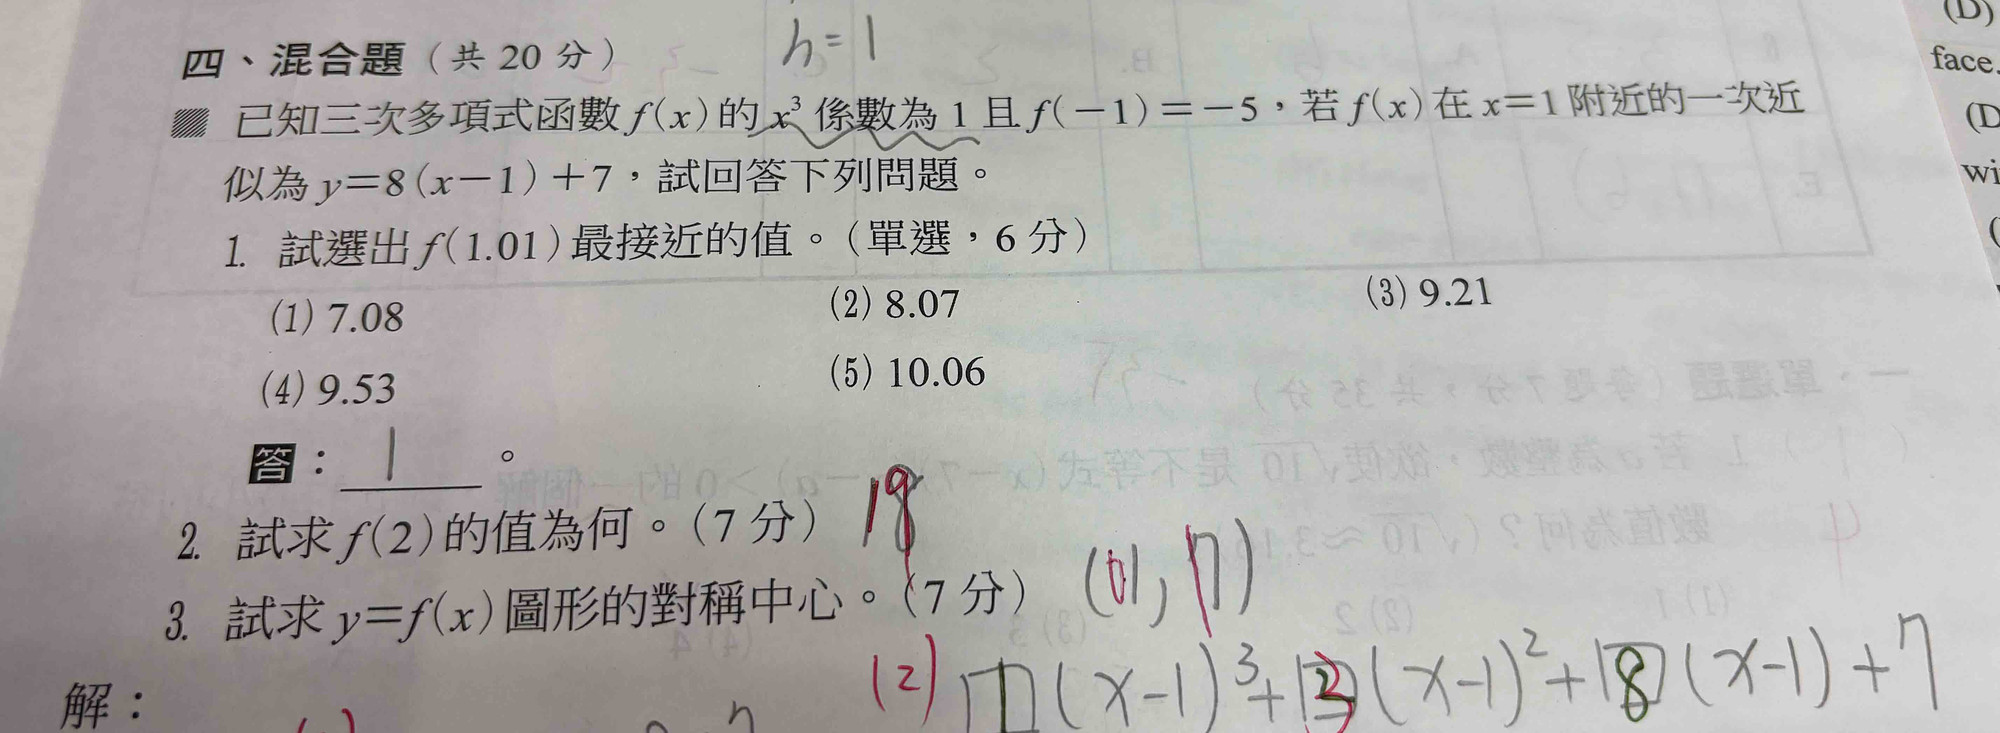 h=1
四、混合題（共 20 分）
已知三次多項式函數 f(x) 的 x³ 係數為 1 且 f(−1)=−5，若 f(x) 在 x=1 附近的一次近
似為 y=8(x−1)+7，試回答下列問題。
1. 試選出 f(1.01) 最接近的值。（單選，6 分）
(1) 7.08 (2) 8.07 (3) 9.21
(4) 9.53 (5) 10.06
答： 1 。
2. 試求 f(2) 的值為何。（7 分） 19
3. 試求 y=f(x) 圖形的對稱中心。（7 分）
(2) 1(x-1)³+3(x-1)²+8(x-1)+7
解：
(D)
face.
(D
wi